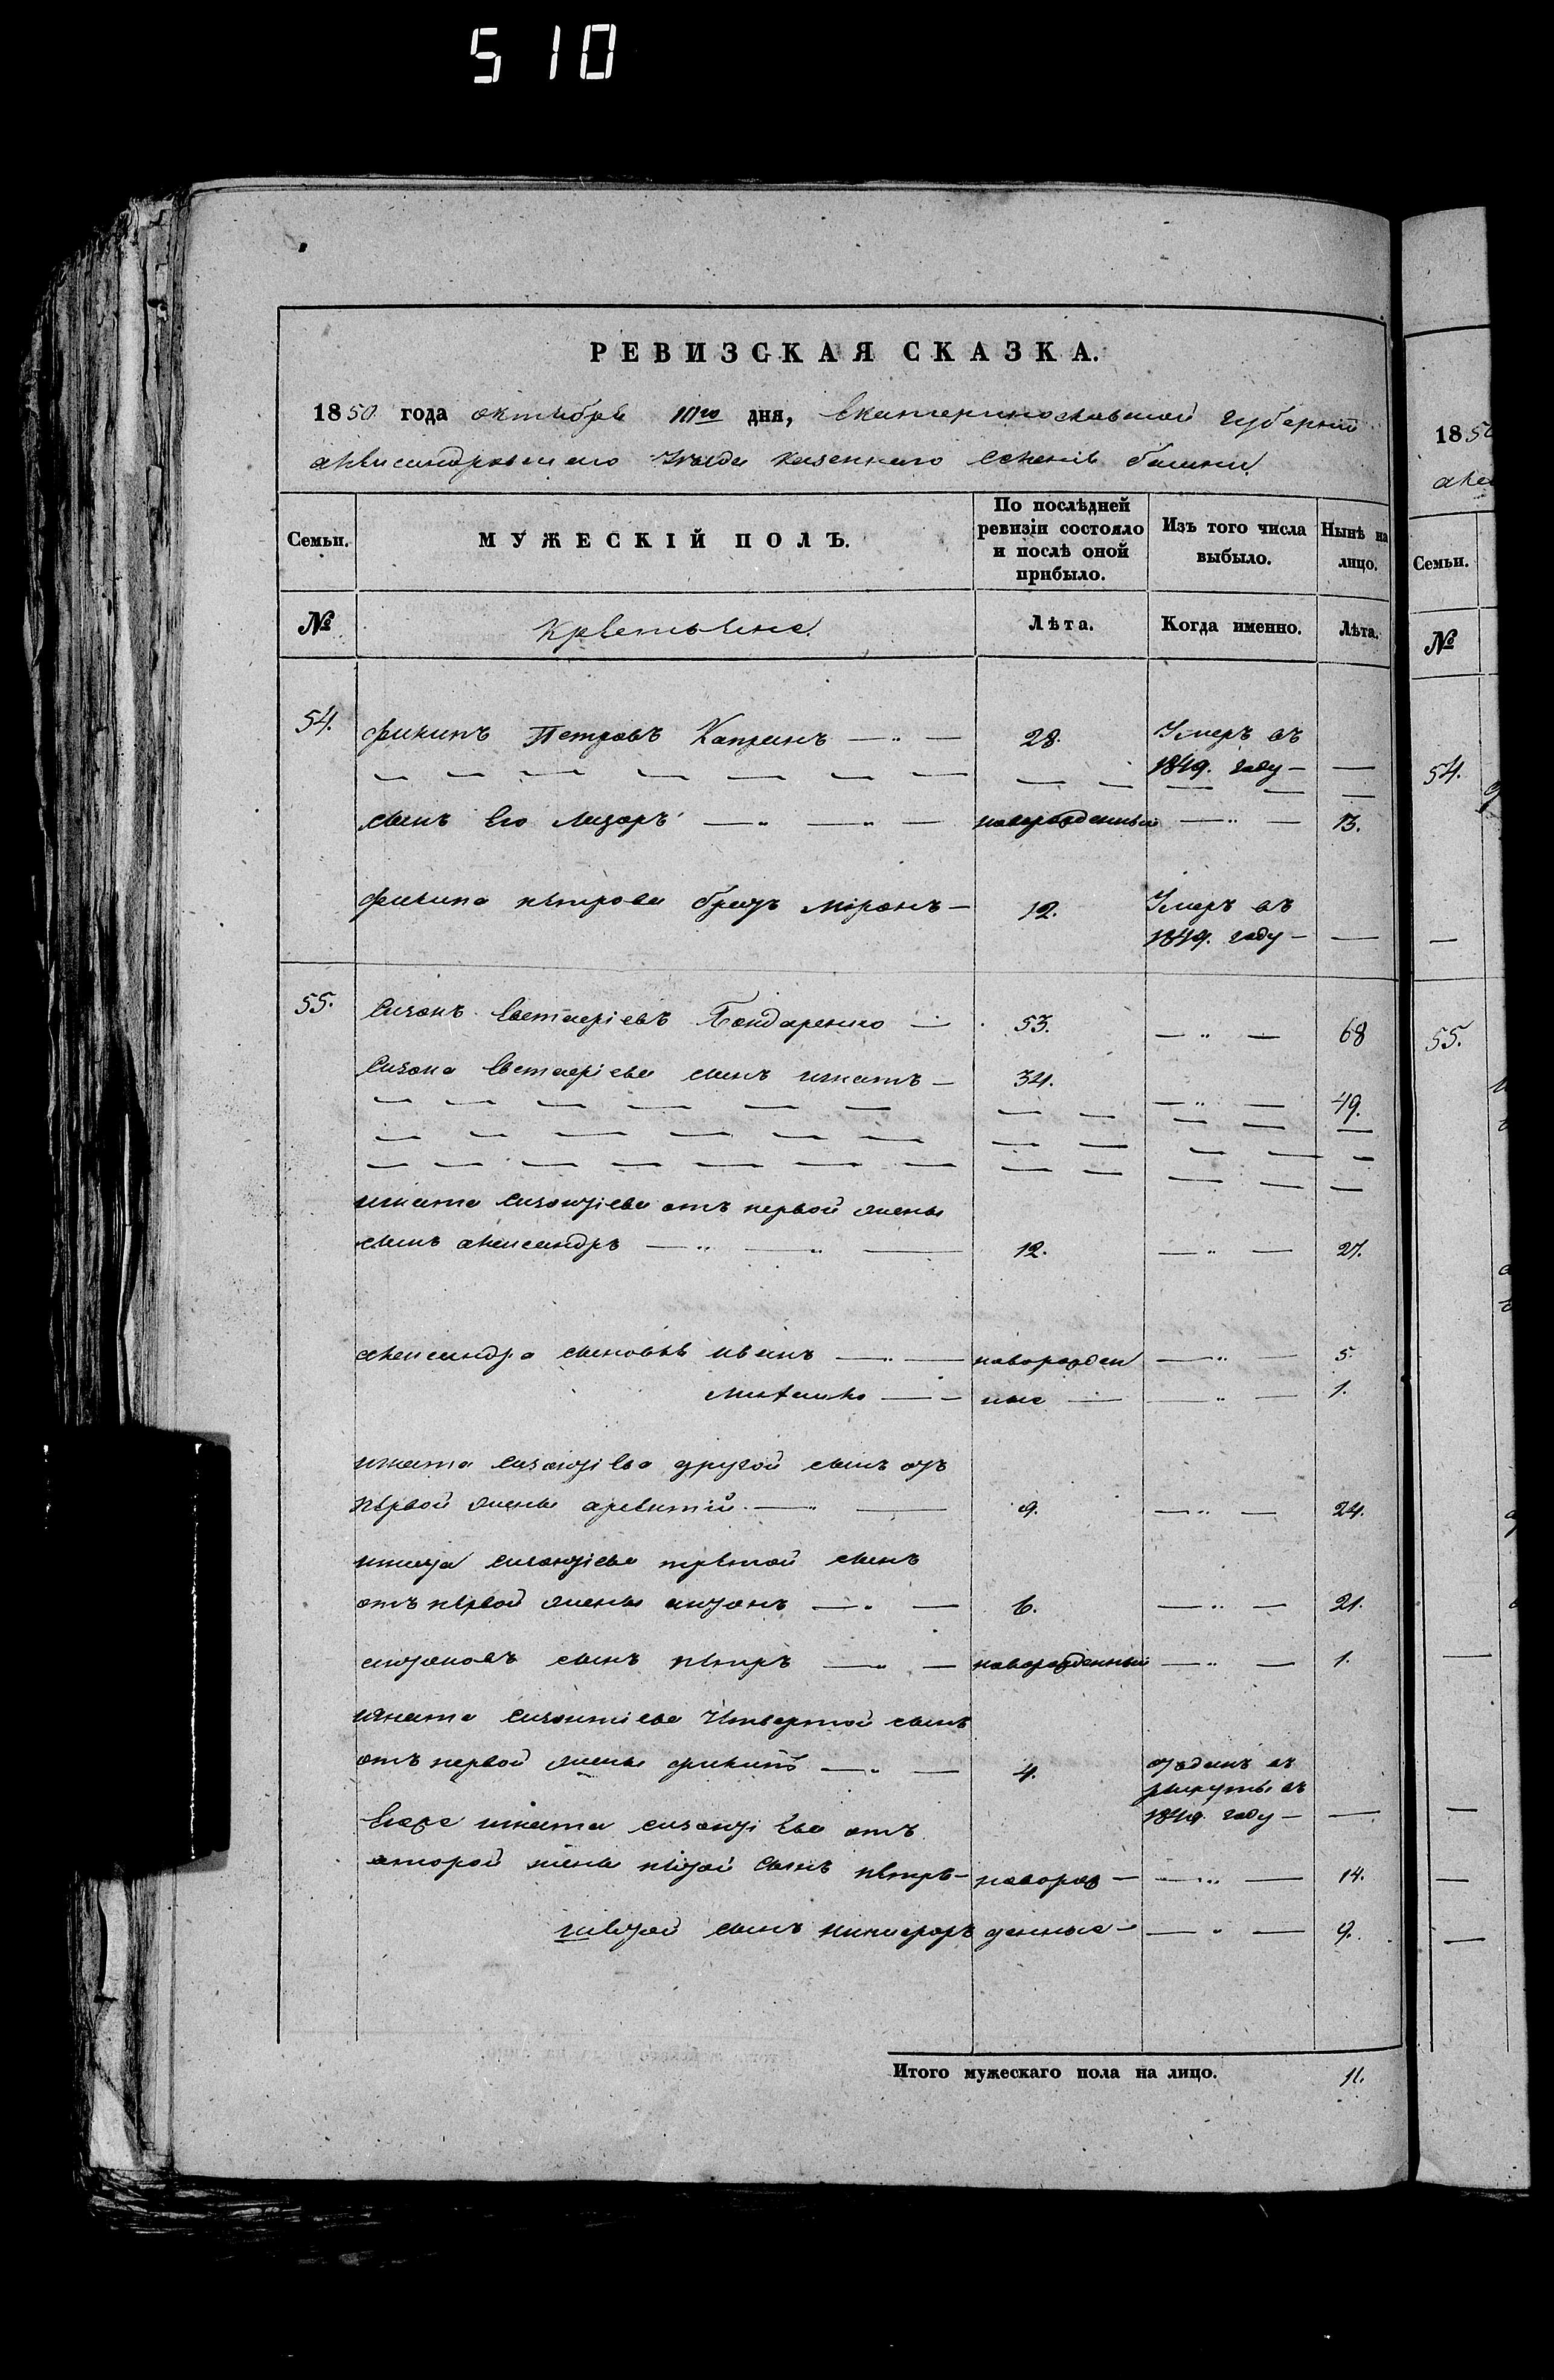 5 10
РЕВИЗСКАЯ СКАЗКА.
1850 года октября 11го дня, Екатеринославской губернии
александровскаго уезда казеннаго селения башки.
Семьи. МУЖЕСКІЙ ПОЛЪ. По послѣдней ревизіи состояло и послѣ оной прибыло. Изъ того числа выбыло. Нынѣ на лицо. Семьи.
№ Крестьяне. Лѣта. Когда именно. Лѣта. №
54. филипъ Петровъ Капранъ 28. Умеръ въ
1849. году 54.
сынъ его лазаръ новорожденный 13.
филипа петрова братъ міронъ 12. Умеръ въ
1849. году
55. Сизонъ Евстафіевъ Бондаренко 53. 68 55.
Сизона Евстафіева сынъ игнатъ 34. 49.
игната сизонтіева отъ первой жены
сынъ александръ 12. 27.
александра сыновья иванъ новорожден 5.
михайло ные 1.
игната сизонтіева другой сынъ отъ
первой жены 9. 24.
игната сизонтіева третой сынъ
отъ первой жены антонъ 6. 21.
антоновъ сынъ петръ новорожденный 1.
игната сизонтіева четвертой сынъ
отъ первой жены филипъ 4. отданъ въ
рекруты въ
1849 году
Еще игната сизонтіева отъ
второй жены пятой сынъ петръ новорож 14.
шестой сынъ никифоръ денные 9.
Итого мужескаго пола на лицо. 11.